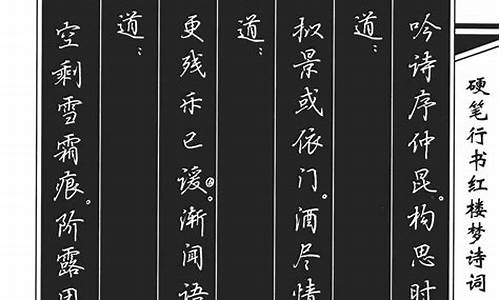 硬笔行书红楼梦诗词
吟诗序仲昆。构思时
道：
拟景或依门。酒尽情
道：
更残乐已谖。渐闻语
道：
空剩雪霜痕。阶露